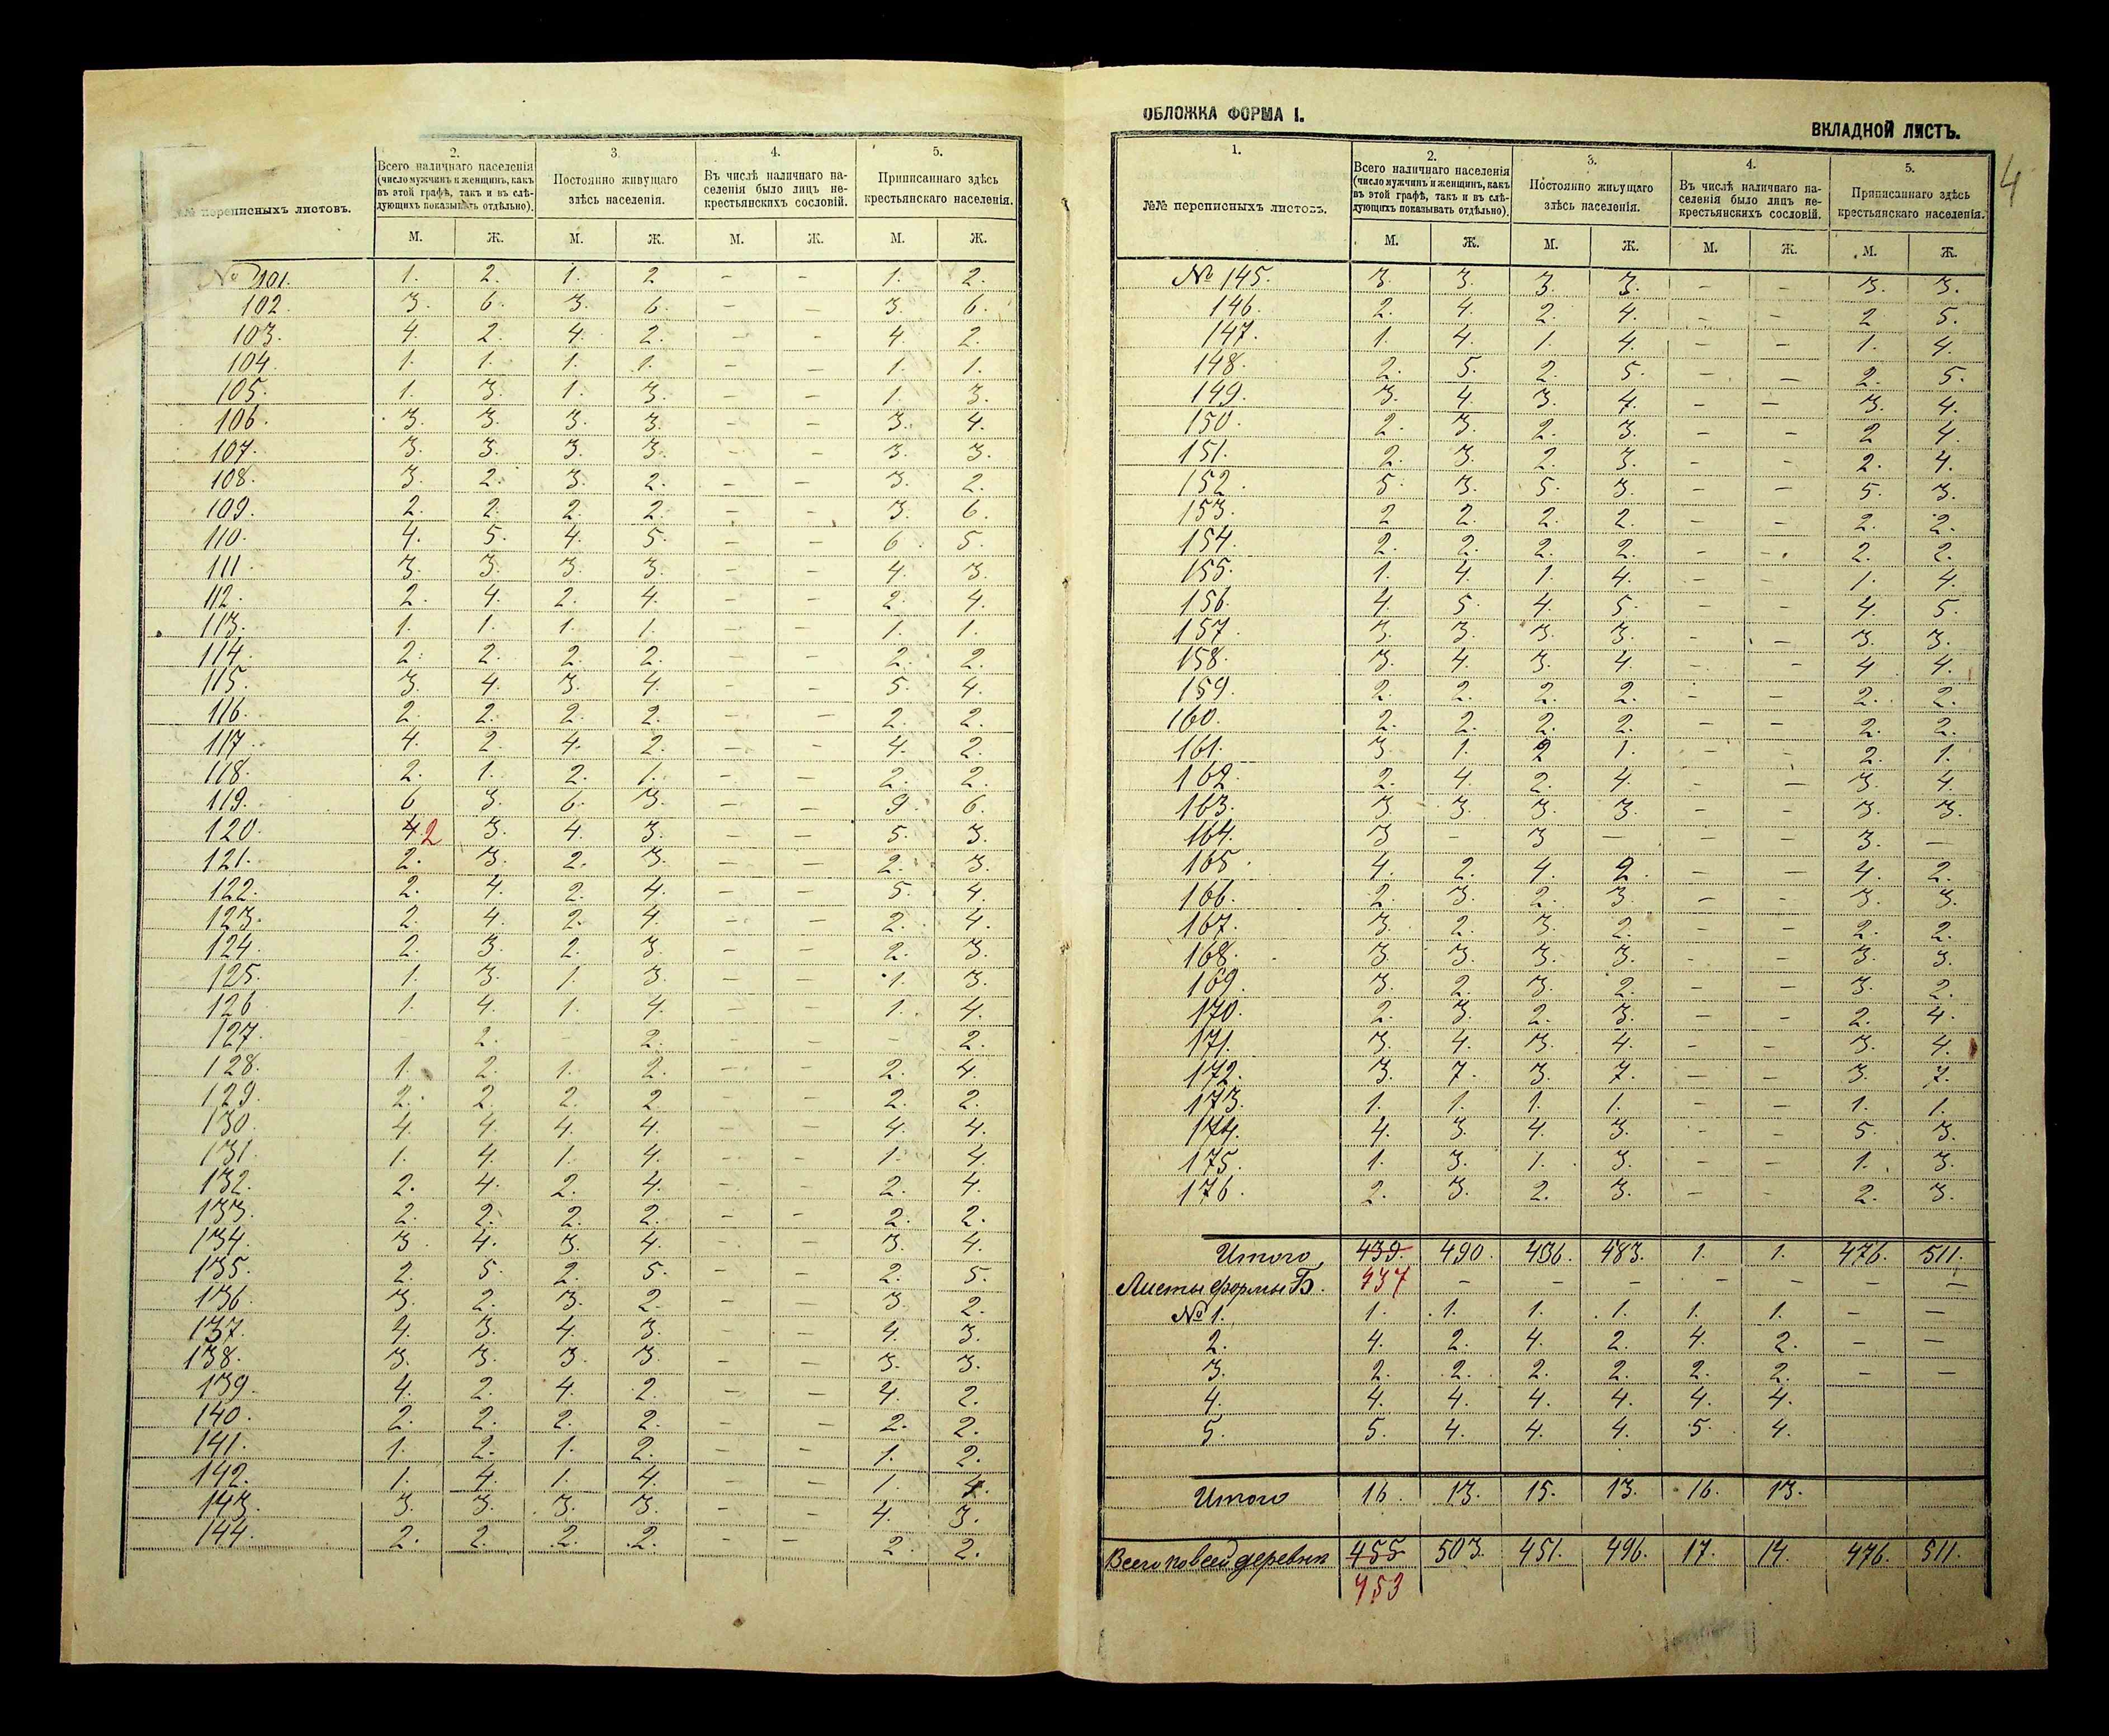 2.
3
4.
5.
Всего наличнаго населенія (число мужчинъ и женщинъ, какъ въ этой графѣ, такъ и въ слѣдующихъ показывать отдѣльно).
Постоянно живущаго здѣсь населенія.
Въ числѣ наличнаго населенія было лицъ некрестьянскихъ сословій.
Приписаннаго здѣсь крестьянскаго населенія.
№№ переписныхъ листовъ.
М. Ж. М. Ж. М. Ж. М. Ж.
№ 101. 1. 2. 1. 2 - - 1. 2.
102. 3. 6. 3. 6. - - 3. 6.
103. 4. 2. 4. 2. - - 4. 2.
104. 1. 1. 1. 1. - - 1. 1.
105. 1. 3. 1. 3. - - 1. 3.
106. 3. 3. 3. 3. - - 3. 4.
107. 3. 3. 3. 3. - - 3. 3.
108. 3. 2. 3. 2. - - 3. 2.
109. 2. 2. 2. 2. - - 3. 6.
110. 4. 5. 4. 5. - - 6. 5.
111. 3. 3. 3. 3. - - 4. 3.
112. 2. 4. 2. 4. - - 2. 4.
113. 1. 1. 1. 1. - - 1. 1.
114. 2. 2. 2. 2. - - 2. 2.
115. 3. 4. 3. 4. - - 5. 4.
116. 2. 2. 2. 2. - - 2. 2.
117. 4. 2. 4. 2. - - 4. 2.
118. 2. 1. 2. 1. - - 2. 2.
119. 6 3. 6. 3. - - 9. 6.
120. 4. 2 3. 4. 3. - - 5. 3.
121. 2. 3. 2. 3. - - 2. 3.
122. 2. 4. 2. 4. - - 5. 4.
123. 2. 4. 2. 4. - - 2. 4.
124. 2. 3 2. 3. - - 2. 3.
125. 1. 3. 1. 3. - - 1. 3.
126 1. 4. 1. 4. - - 1. 4.
127. - 2. - 2. - - - 2.
128. 1. 2. 1. 2. - - 2. 4.
129. 2. 2. 2. 2 - - 2. 2.
130. 4. 4. 4. 4. - - 4. 4.
131. 1. 4. 1. 4. - - 1. 4.
132. 2. 4. 2. 4. - - 2. 4.
133. 2. 2. 2. 2. - - 2. 2.
134. 3. 4. 3. 4. - - 3. 4.
135. 2. 5. 2. 5. - - 2. 5.
136. 3. 2. 3. 2. - - 3. 2.
137. 4. 3. 4. 3. - - 4. 3.
138. 3. 3. 3. 3. - - 3. 3.
139. 4. 2. 4. 2 - - 4. 2.
140. 2. 2. 2. 2. - - 2. 2.
141. 1. 2. 1. 2. - - 1. 2.
142. 1. 4. 1. 4. - - 1. 4.
143. 3 3. 3. 3. - - 4. 3.
144. 2. 2. 2. 2. - - 2. 2.
ОБЛОЖКА ФОРМА I.
ВКЛАДНОЙ ЛИСТЪ.
4
1.
2.
3.
4.
5.
№№ переписныхъ листовъ.
Всего наличнаго населенія (число мужчинъ и женщинъ, какъ въ этой графѣ, такъ и въ слѣдующихъ показывать отдѣльно).
Постоянно живущаго здѣсь населенія.
Въ числѣ наличнаго населенія было лицъ некрестьянскихъ сословій.
Приписаннаго здѣсь крестьянскаго населенія.
М. Ж. М. Ж. М. Ж. М. Ж.
№ 145. 3. 3. 3. 3. - - 3. 3.
146. 2. 4. 2. 4. - - 2 5.
147. 1. 4. 1. 4. - - 1. 4.
148. 2. 5. 2. 5. - - 2. 5.
149. 3. 4. 3. 4. - - 3. 4.
150. 2. 3. 2. 3. - - 2 4.
151. 2. 3. 2. 3. - - 2. 4.
152. 5. 3. 5. 3. - - 5. 3.
153. 2 2. 2. 2. - - 2. 2.
154. 2. 2. 2. 2. - - 2. 2.
155. 1. 4. 1. 4. - - 1. 4.
156. 4. 5. 4. 5. - - 4. 5.
157. 3. 3. 3. 3. - - 3. 3.
158. 3. 4. 3. 4. - - 4 4.
159. 2. 2. 2. 2. - - 2. 2.
160. 2. 2. 2. 2. - - 2. 2.
161. 3. 1. 2 1. - - 2. 1.
162. 2. 4. 2. 4. - - 3. 4.
163. 3. 3. 3. 3. - - 3. 3.
164. 3 - 3 - - - 3. -
165. 4. 2. 4. 2. - - 4. 2.
166. 2. 3. 2. 3. - - 3. 3.
167. 3. 2. 3. 2. - - 2. 2.
168. 3. 3. 3. 3. - - 3. 3.
169. 3. 2. 3. 2. - - 3. 2.
170. 2. 3. 2. 3. - - 2. 4.
171. 3. 4. 3. 4. - - 3. 4.
172. 3. 7. 3. 7. - - 3. 7.
173. 1. 1. 1. 1. - - 1. 1.
174. 4. 3. 4. 3. - - 5. 3.
175. 1. 3. 1. 3. - - 1. 3.
176. 2. 3. 2. 3. - - 2. 3.
Итого 439. 490. 436. 483. 1. 1. 476. 511.
Листы формы Б. 437 - - - - - - -
№ 1. 1. 1. 1. 1. 1. 1. - -
2. 4. 2. 4. 2. 4. 2. - -
3. 2. 2. 2. 2. 2. 2. - -
4. 4. 4. 4. 4. 4. 4.
5. 5. 4. 4. 4. 5. 4.
Итого 16. 13. 15. 13. 16. 13.
Всего по всей деревни 455 503. 451. 496. 17. 14. 476. 511.
453